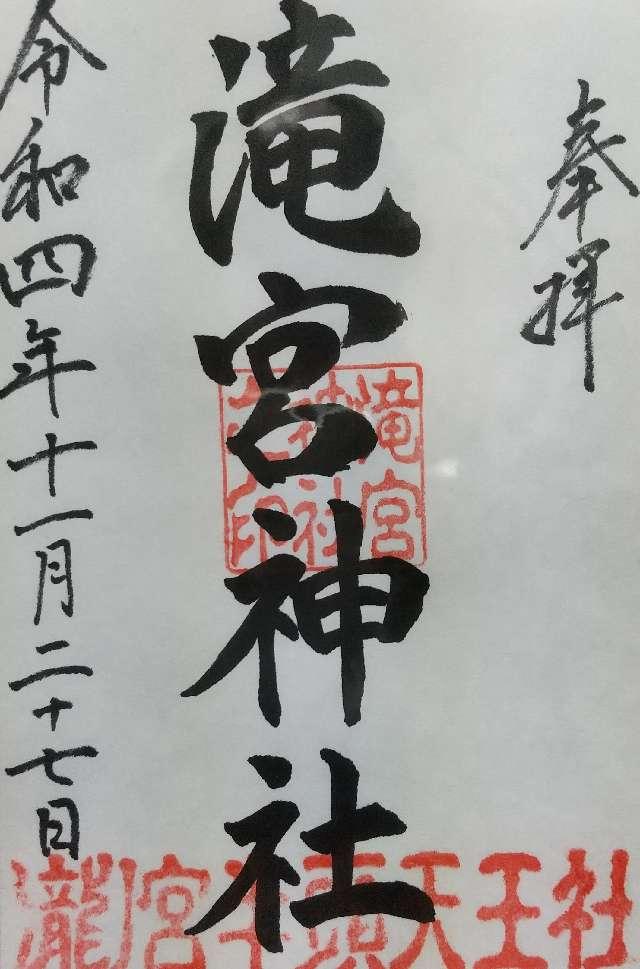 奉拝
滝宮神社
滝宮
神社
之印
令和四年十一月二十七日
瀧宮牛頭天王社